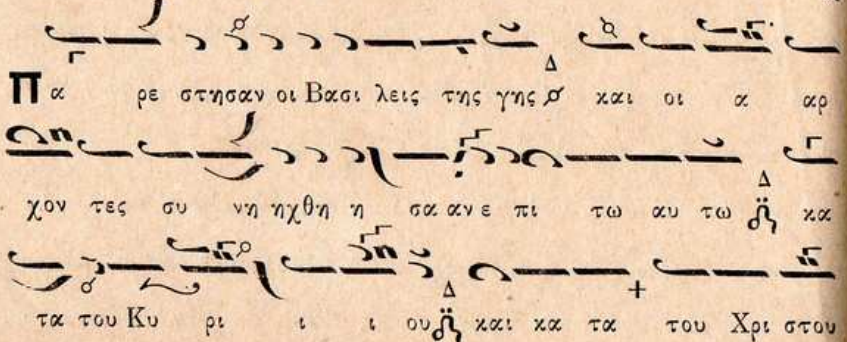 Πα ρε στησαν οι Βασι λεις της γης Δ και οι α αρ
χον τες συ νη ηχθη η σα αν ε πι τω αυ τω Δ κα
τα του Κυ ρι ι ι ου Δ και κα τα του Χρι στου